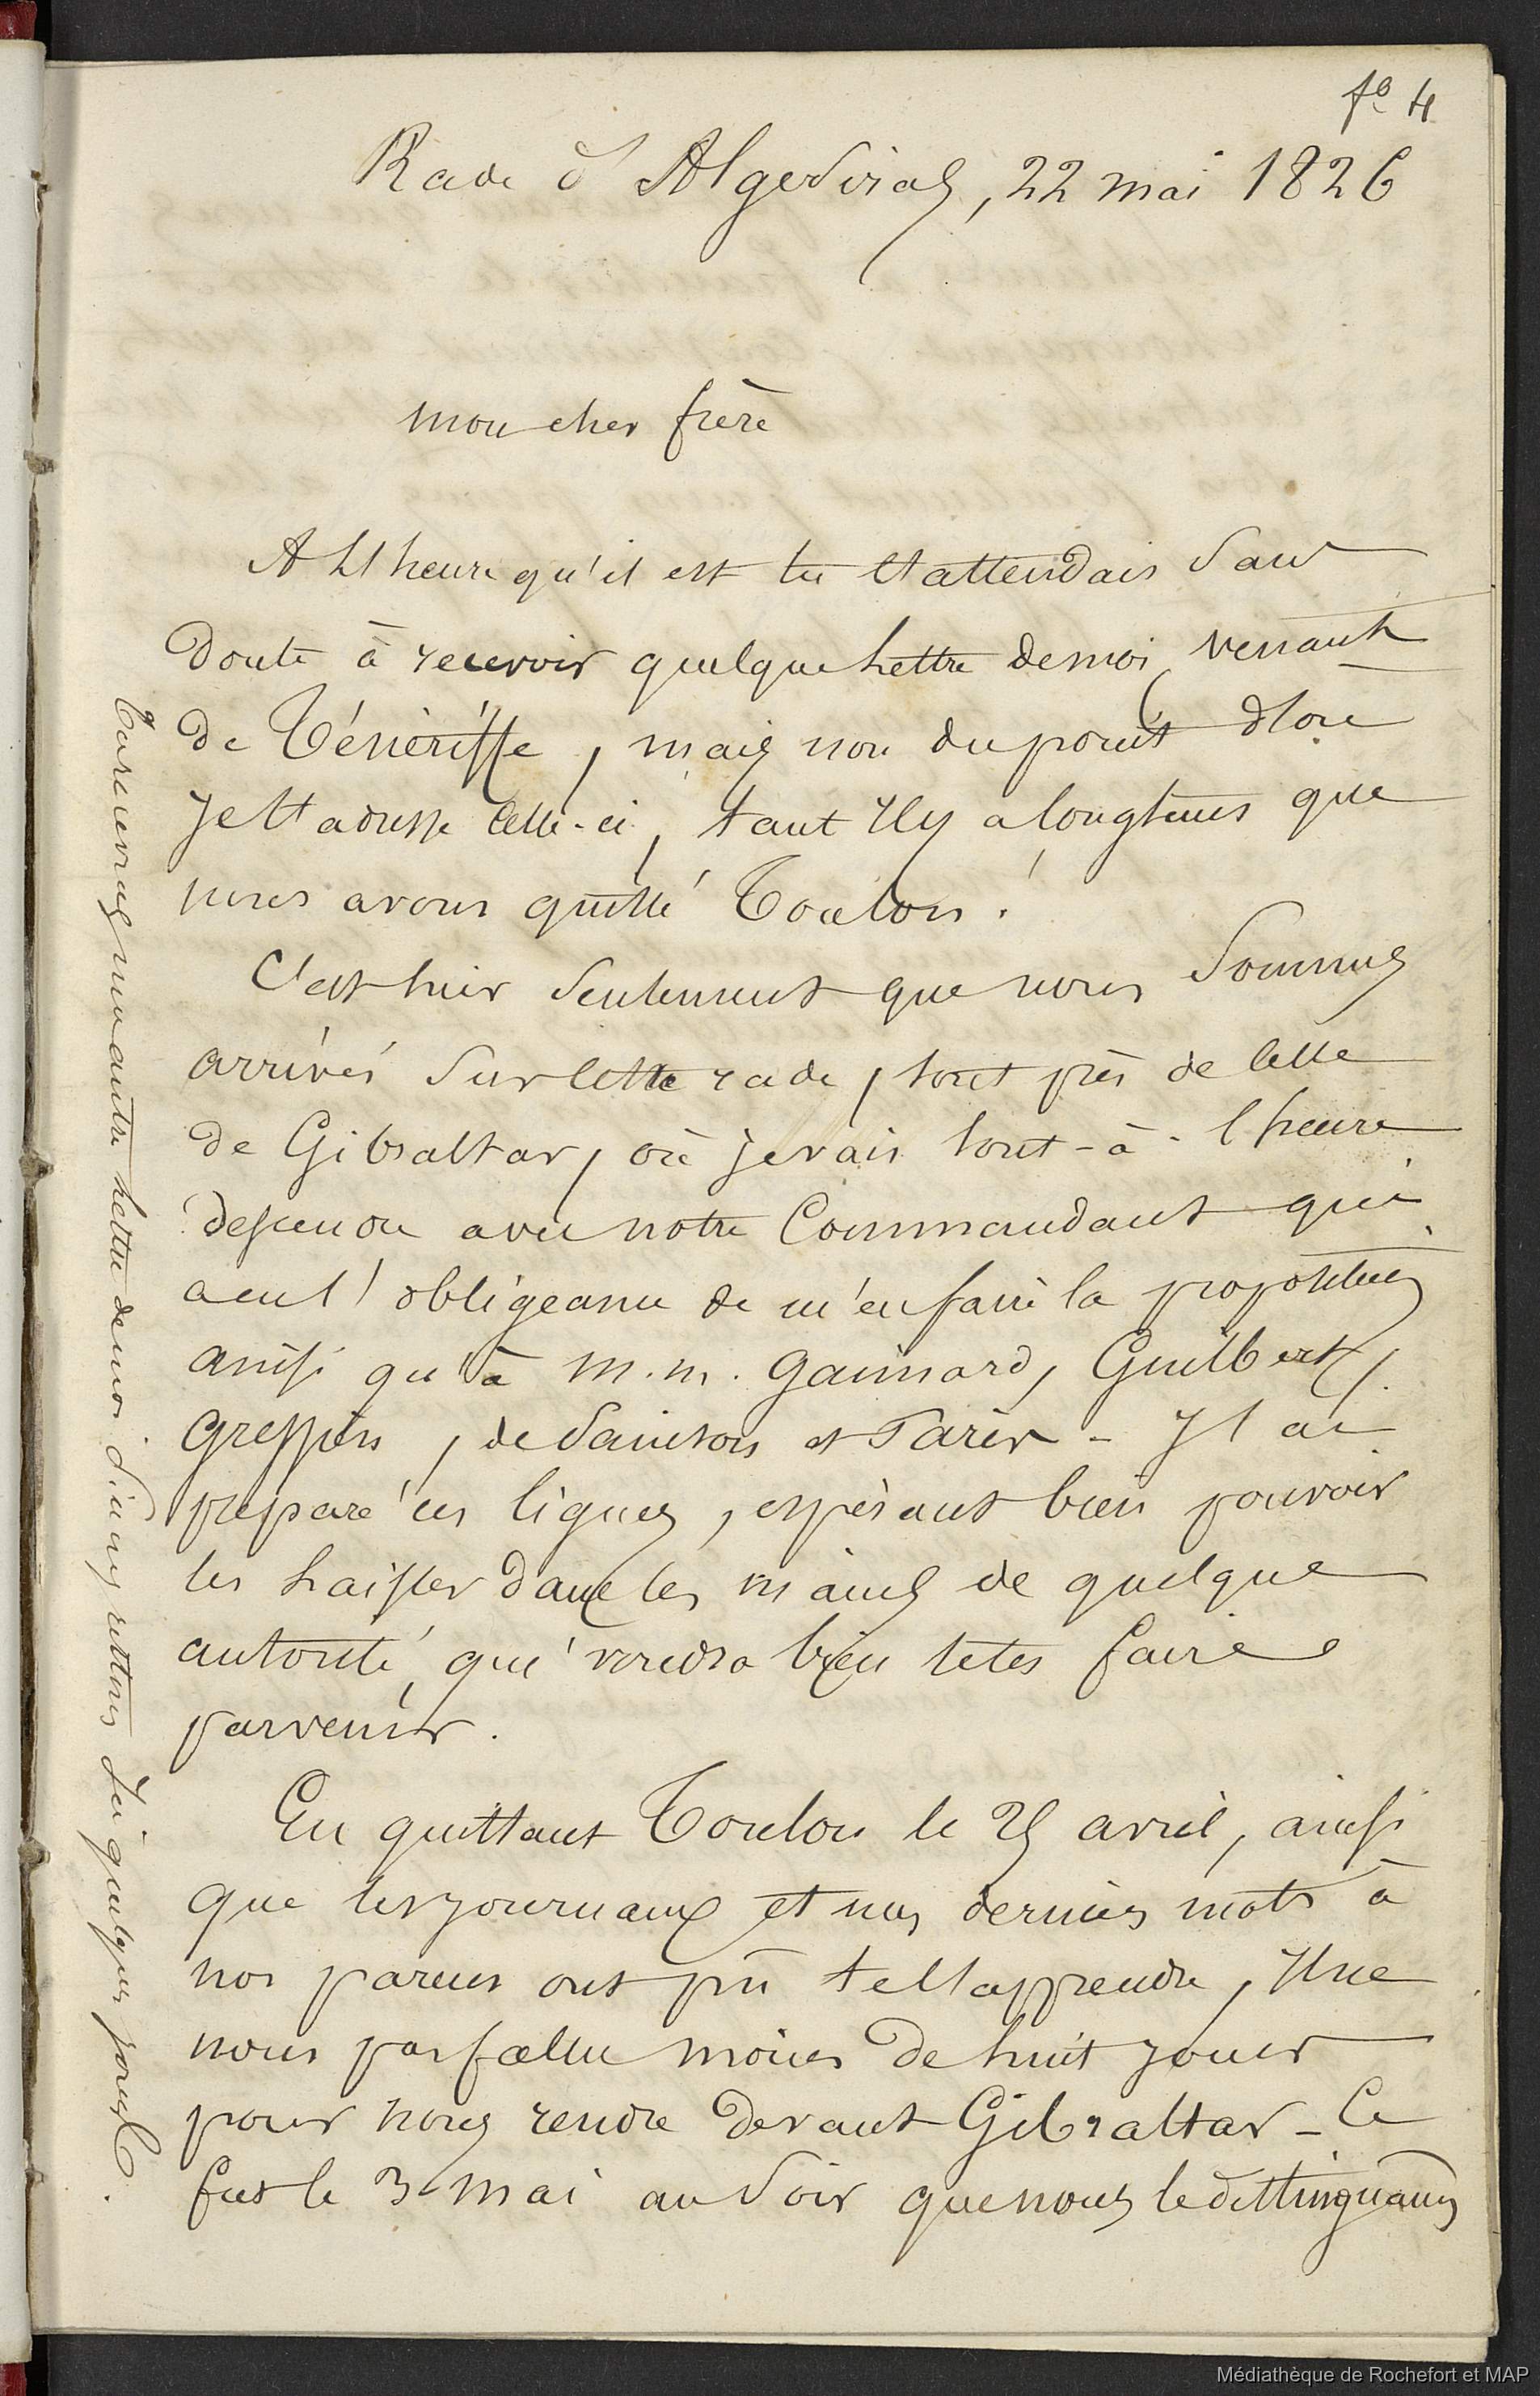 fo 4
Rade d'Algesiras, 22 mai 1826
mon cher frère
A l'heure qu'il est tu t'attendais sans
doute à recevoir quelque lettre de moi, venant
de Ténériffe, mais non du point d'où
je t'adresse celle-ci, tant il y a longtems que
nous avons quitté Toulon !
C'est hier seulement que nous sommes
arrivés sur cette rade, tout près de celle
de Gibraltar, où je vais tout-à-l'heure
descendre avec notre Commandant qui
a eu l'obligeance de m'en faire la proposition
ainsi qu'à M.M. Gaimard, Guilbert,
Gressien, de Sainson et Paris - J'ai
préparé ces lignes, espérant bien pouvoir
les laisser dans les mains de quelque
autorité, qui voudra bien te les faire
parvenir.
En quittant Toulon le 25 avril, ainsi
que les journaux et mes derniers mots à
nos parens ont pû te l'apprendre, il ne
nous pas fallu moins de huit jours
pour nous rendre devant Gibraltar - Ce
fut le 3 mai au soir que nous le distinguâmes
Tu recevras une autre lettre de moi d'ici quelques jours.
Médiathèque de Rochefort et MAP